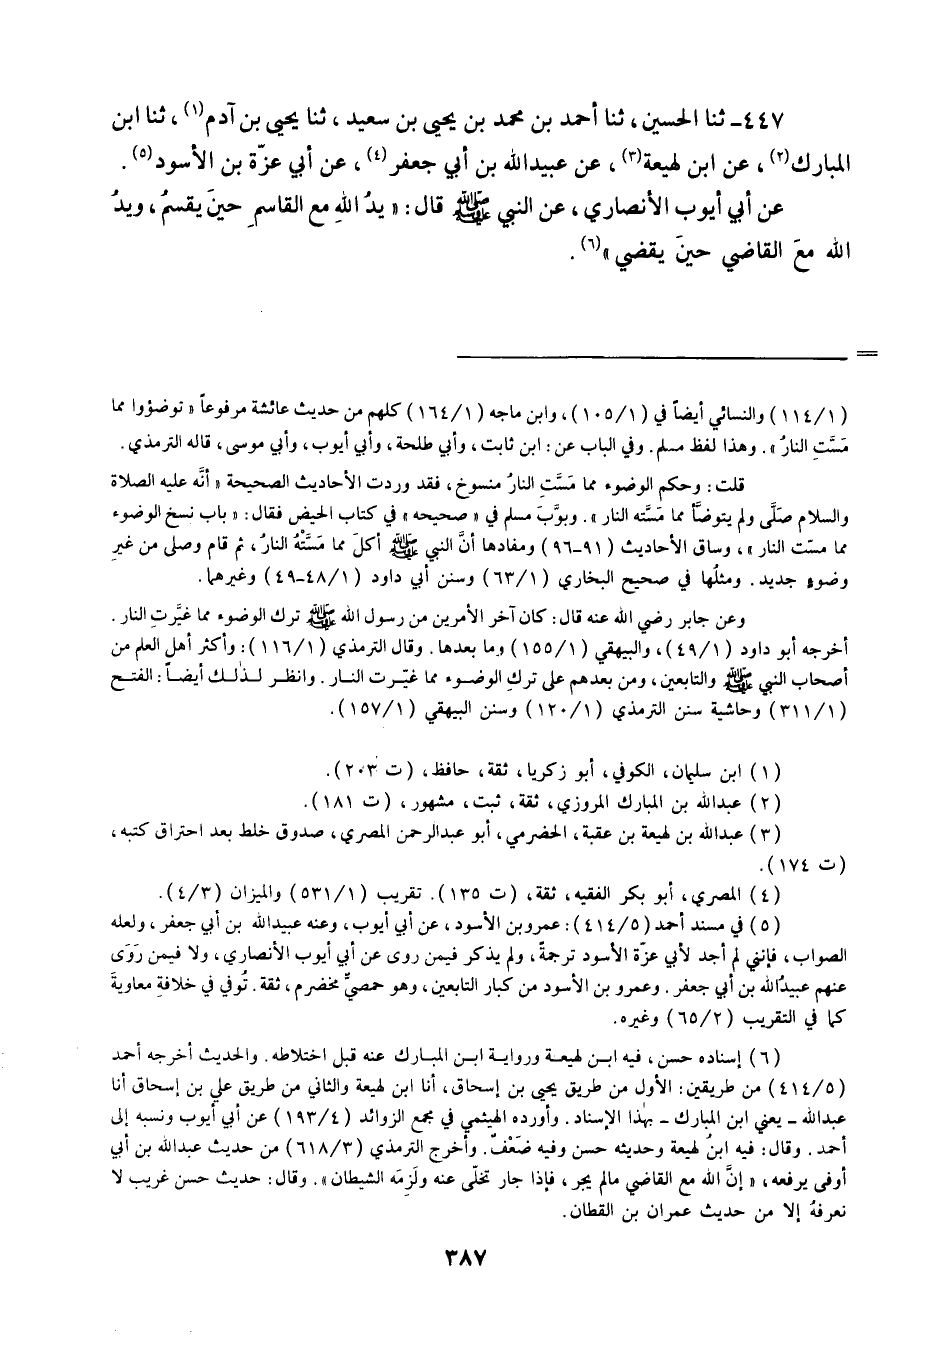 ٤٤٧ــ ثنا الحسين، ثنا أحمد بن محمد بن يحيى بن سعيد، ثنا يحيى بن آدم(١)، ثنا ابن
المبارك(٢)، عن ابن لهيعة(٣)، عن عبيدالله بن أبي جعفر(٤)، عن أبي عزّة بن الأسود(٥).
عن أبي أيوب الأنصاري، عن النبي ﷺ قال: «يدُ اللهِ مع القاسمِ حينَ يقسمُ، ويدُ
الله معَ القاضي حينَ يقضي»(٦).
=
(١١٤/١) والنسائي أيضاً في (١٠٥/١)، وابن ماجه (١٦٤/١) كلهم من حديث عائشة مرفوعاً «توضؤوا مما
مَسَّتِ النارُ». وهذا لفظ مسلم. وفي الباب عن: ابن ثابت، وأبي طلحة، وأبي أيوب، وأبي موسى، قاله الترمذي.
قلت: وحكم الوضوء مما مَسَّتِ النارُ منسوخ، فقد وردت الأحاديث الصحيحة «أنَّه عليه الصلاة
والسلام صَلَّى ولم يتوضأْ مما مَسَّته النار». وبوَّبَ مسلم في «صحيحه» في كتاب الحيض فقال: «باب نسخ الوضوء
مما مسّت النار»، وساق الأحاديث (٩١-٩٦) ومفادها أنَّ النبي ﷺ أكلَ مما مَسَّتْهُ النارُ، ثم قام وصلى من غيرِ
وضوءٍ جديد. ومثلُها في صحيح البخاري (٦٣/١) وسنن أبي داود (٤٨/١-٤٩) وغيرهما.
وعن جابر رضي الله عنه قال: كان آخر الأمرين من رسول الله ﷺ ترك الوضوء مما غيَّرتِ النار.
أخرجه أبو داود (٤٩/١)، والبيهقي (١٥٥/١) وما بعدها. وقال الترمذي (١١٦/١): وأكثر أهل العلم من
أصحاب النبي ﷺ والتابعين، ومن بعدهم على تركِ الوضوء مما غيّرت النار. وانظر لذلك أيضاً: الفتح
(٣١١/١) وحاشية سنن الترمذي (١٢٠/١) وسنن البيهقي (١٥٧/١).
(١) ابن سليمان، الكوفي، أبو زكريا، ثقة، حافظ، (ت ٢٠٣).
(٢) عبدالله بن المبارك المروزي، ثقة، ثبت، مشهور، (ت ١٨١).
(٣) عبدالله بن لهيعة بن عقبة، الحضرمي، أبو عبدالرحمن المصري، صدوق خلط بعد احتراق كتبه،
(ت ١٧٤).
(٤) المصري، أبو بكر الفقيه، ثقة، (ت ١٣٥). تقريب (٥٣١/١) والميزان (٤/٣).
(٥) في مسند أحمد (٤١٤/٥): عمرو بن الأسود، عن أبي أيوب، وعنه عبيدالله بن أبي جعفر، ولعله
الصواب، فإنني لم أجد لأبي عزّة الأسود ترجمةً، ولم يذكر فيمن روى عن أبي أيوب الأنصاري، ولا فيمن رَوَى
عنهم عبيدُالله بن أبي جعفر. وعمرو بن الأسود من كبار التابعين، وهو حمصيٌّ مخضرم، ثقة. تُوفي في خلافةِ معاويةَ
كما في التقريب (٦٥/٢) وغيره.
(٦) إسناده حسن، فيه ابن لهيعة ورواية ابن المبارك عنه قبل اختلاطه. والحديث أخرجه أحمد
(٤١٤/٥) من طريقين: الأول من طريق يحيى بن إسحاق، أنا ابن لهيعة والثاني من طريق علي بن إسحاق أنا
عبدالله ــ يعني ابن المبارك ــ بهذا الإسناد. وأورده الهيثمي في مجمع الزوائد (١٩٣/٤) عن أبي أيوب ونسبه إلى
أحمد. وقال: فيه ابنُ لهيعة وحديثه حسن وفيه ضَعْفٌ. وأخرج الترمذي (٦١٨/٣) من حديث عبدالله بن أبي
أوفى يرفعه، «إنَّ الله مع القاضي مالم يجر، فإذا جار تخلّى عنه ولَزِمَه الشيطان». وقال: حديث حسن غريب لا
نعرفهُ إلا من حديث عمران بن القطان.
٣٨٧